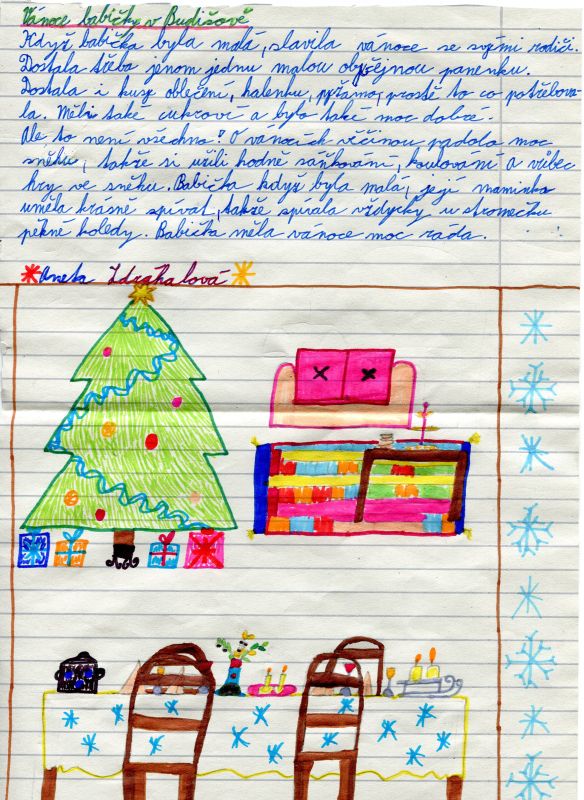 Vánoce babičky v Budišově
Když babička byla malá, slavila vánoce se svými rodiči.
Dostala třeba jenom jednu malou obyčejnou panenku.
Dostala i kusy oblečení, halenku, pyžamo, prostě to co potřebova-
la. Měli také cukroví a bylo také moc dobré.
Ale to není všechno! O vánocích věčinou padalo moc
sněhu, takže si užili hodně sáňkování, koulování a vůbec
hry ve sněhu. Babička když byla malá, její maminka
uměla krásně spívat, takže spívala vždycky u stromečku
pěkné koledy. Babička měla vánoce moc ráda.
Aneta Zdražalová